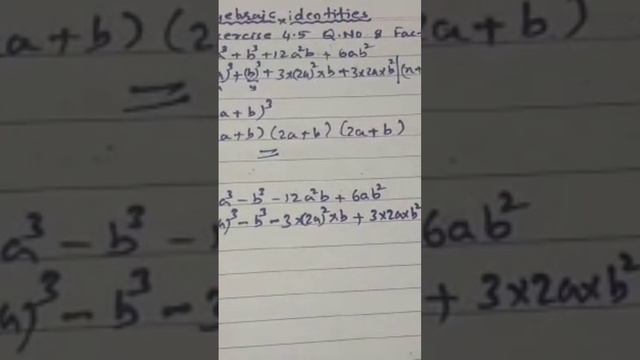 gebraic identities
ercise 4.5 Q.No 8 Fac-
a³ + b³ + 12a²b + 6ab²
a)³ + (b)³ + 3×(2a)²×b + 3×2a×b² (x+
a + b)³
a+b) (2a+b) (2a+b)
a³ - b³ - 12a²b + 6ab²
a)³ - b³ - 3×(2a)²×b + 3×2a×b²
a+b) (2
a³ - b³ -
6ab²
a)³ - b³ - 3
+ 3×2a×b²